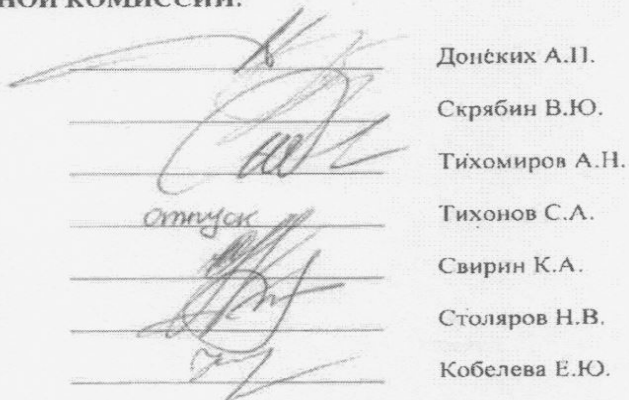 НОЙ КОМИССИИ:
Донских А.П.
Скрябин В.Ю.
Тихомиров А.Н.
отпуск Тихонов С.А.
Свирин К.А.
Столяров Н.В.
Кобелева Е.Ю.